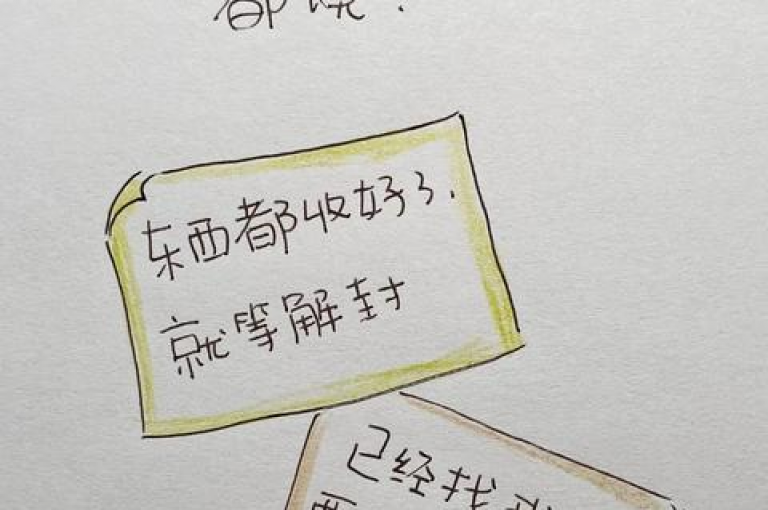 都
东西都收好了.
就等解封
已经找
要